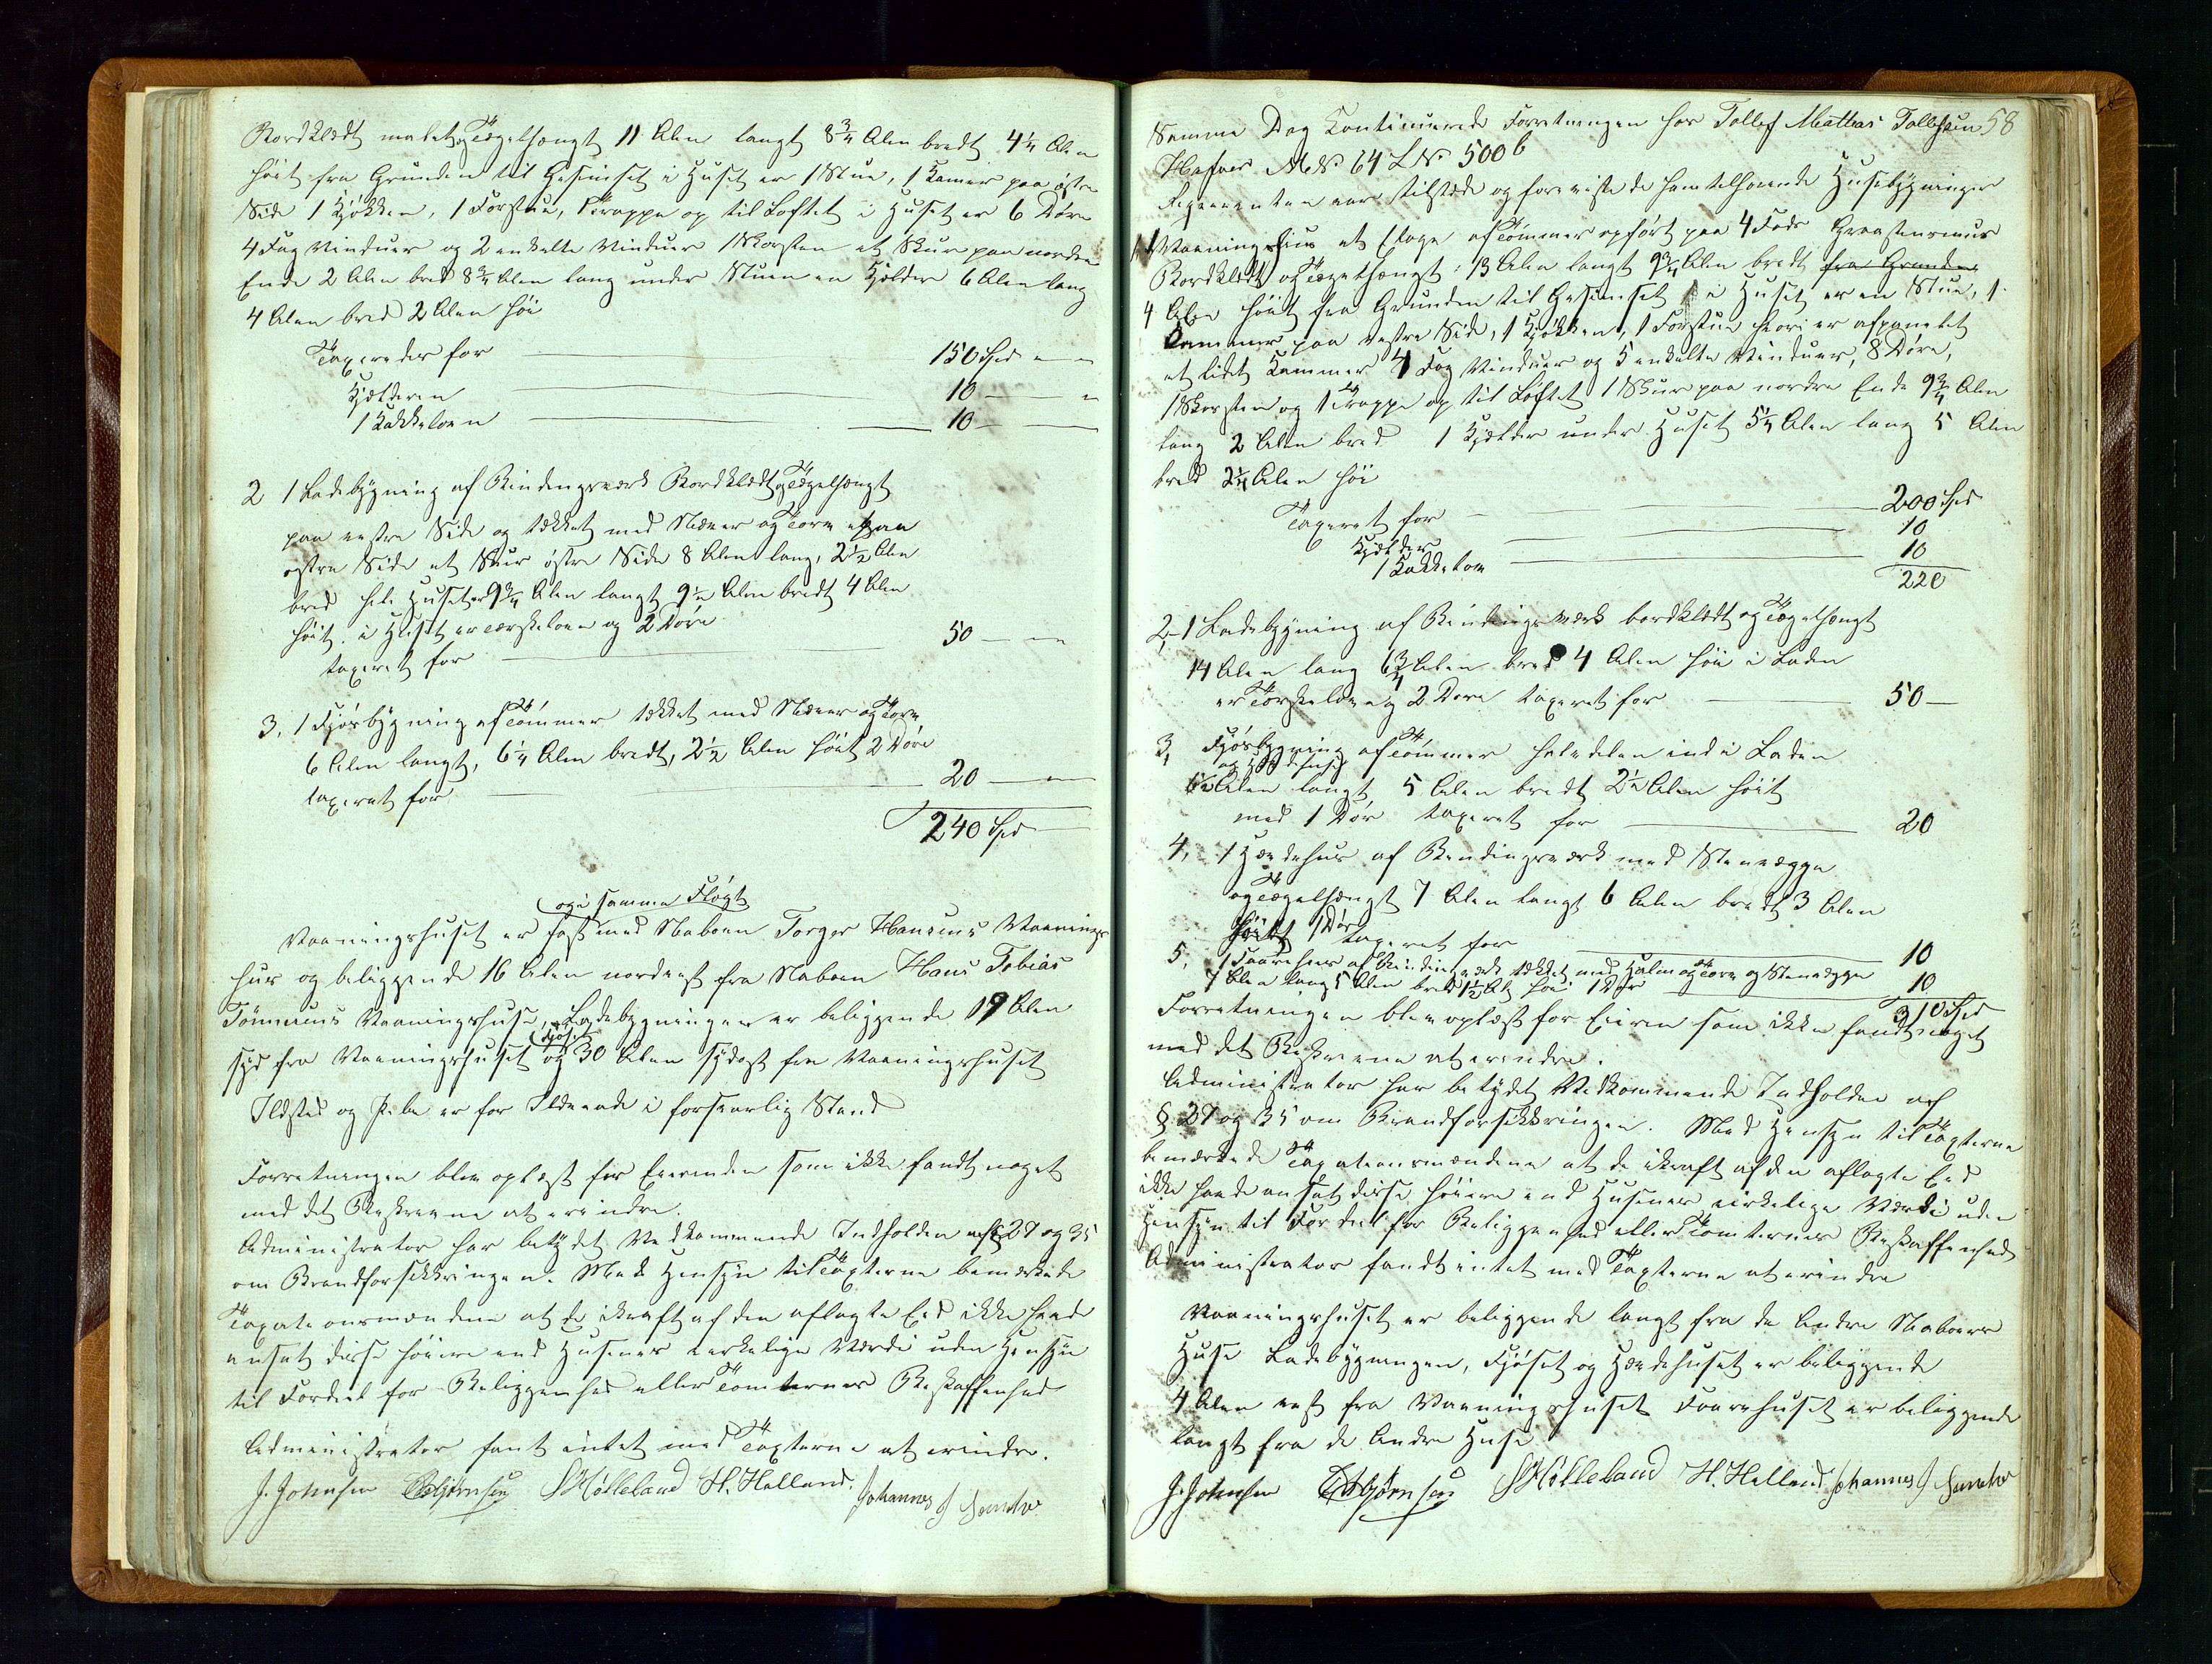 Bordklædt malet og Tægelhængt 11 Alen langt 8 3/4 Alen bredt 4 1/4 Alen
høit fra Grunden til Gesimset i Huset er 1 Stue, 1 Kamer paa østre
Side 1 Kjøkken, 1 Forstue, 1 Trappe op til Loftet i Huset er 6 Døre
4 Fag Vinduer og 2 enkelte Vinduer 1 Skorsten et Skur paa nordre
Ende 2 Alen bred 8 3/4 Alen lang under Stuen en Kjelder 6 Alen lang
4 Alen bred 2 Alen høi
Taxeredes for 150 Spd
Kjælderen 10
1 Kakkeloven 10
2 1 Ladebygning af Bindingsværk Bordklædt og Tægelhængt
paa vestre Side og tækket med Næver og Torv paa
østre Side et Skur østre Side 8 Alen lang, 2 1/2 Alen
bred hele Huset er 9 3/4 Alen langt 9 1/2 Alen bredt 4 Alen
høit. i Huset er Tærskeloen og 2 Døre
taxeret for 50
3. 1 Fjøsbygning af Tømmer tækket med Næver og Torv
6 Alen langt, 6 1/4 Alen bredt, 2 1/2 Alen høit 2 Døre
taxeret for 20
240 Spd
og i samme Fløgt
Vaaningshuset er fast med Naboen Torger Hansens Vaanings
hus og beliggende 16 Alen nordvest fra Naboen Hans Tobias
Tønnesens Vaaningshuse, Ladebygningen er beliggende 19 Alen
Fjøset
syd fra Vaaningshuset og 30 Alen sydost fra Vaaningshuset
Ildsted og Pibe er for Ildsvaade i forsvarlig Stand
Forretningen blev oplæst for Eierinden som ikke fandt noget
med det Beskrevne at erindre.
Administrator har betydet Vedkommende Indholden af § 27 og 35
om Brandforsikkringen. Med Hensyn til Taxterne bemærkede
Taxationsmændene at de ikraft af den aflagte Eed ikke havde
ansat disse høiere end Husenes virkelige Værdi uden Hensyn
til Fordeel for Beliggenhed eller Tomternes Beskaffenhed
Administrator fant intet med Taxterne at erindre.
J. Johnsen Asbjørnsen S Hølleland H. Helland. Johannes J
58
Samme Dag Kontinuerede Forretningen hos Tollef Mathias Tollefsen
Hafnes M.N. 64 L N. 500 b
var tilstæde og foreviste de hamtelhørende Husebygninger
1 1 Vaaningshus et Etage af Tømmer opført paa 4 Fods Graastensmur
Bordklædt og Tægelhængt. 13 Alen langt 9 3/4 Alen bredt fra Grunden
4 Alen høit fra Grunden til Gesimset i Huset er en Stue, 1
Kammer paa vestre Side, 1 Kjøkken, 1 Forstue hvori er afpanelet
et lidet Kammer 4 Fag Vinduer og 5 enkelte Vinduer, 8 Døre,
1 Skorsten og 1 Trappe op til Loftet 1 Skur paa nordre Ende 9 3/4 Alen
lang 2 Alen bred 1 Kjælder under Huset 5 1/4 Alen lang 5 Alen
bred 2 1/4 Alen høi
Taxeret for 200 Spd
Kjælder 10
1 Kakkelovn 10
220
2, 1 Ladebygning af Bindingsværk bordklædt og Tægelhængt
14 Alen lang 6 3/4 Alen bred 4 Alen høi i Laden
er Tærskeloe og 2 Døre taxeret for 50
3, Fjøsbygning af Tømmer heledelen ind i Laden
Alen langt 5 Alen bredt 2 1/2 Alen høit
med 1 Dør taxeret for 20
4, 1 Hædehus af Bindingsværk med Stenvægge
og Tægelhængt 7 Alen langt 6 Alen bredt 3 Alen
høit 1 Dør taxeret for 10
5, 1 Faarehus af Bindingsværk tækket med Halm og Torv og Stenvægge
7 Alen lang 5 Alen bred 1 1/2 Al høi 1 Dør 10
310 Spd
Forretningen blev oplæst for Eieren som ikke fandt noget
med det Beskrevne at erindre.
Administrator har betydet Vedkommende Indholden af
§ 27 og 35 om Brandforsikkringen. Med Hensyn til Taxterne
bemærkede Taxationsmændene at de ikraft af den aflagte Eed
ikke havde ansat disse høiere end Husenes virkelige Værdi uden
Hensyn til Fordeel for Beliggenhed eller Tomternes Beskaffenhed
Administrator fandt intet med Taxterne at erindre
Vaaningshuset er beliggende langt fra de Andre Naboers
Huse Ladebygningen, Fjøset og Hædehuset er beliggende
4 Alen vest fra Vaaningshuset Faarehuset er beliggende
langt fra de Andre Huse
J. Johnsen Asbjørnsen S Hølleland H. Helland Johannes J